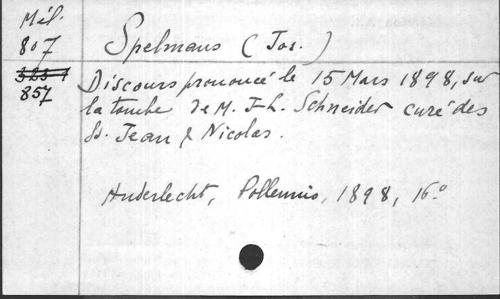 Mél.
807
857
Spelmans (Jos.)
Discours prononcé le 15 Mars 1898, sur
la tombe de M. J-L. Schneider curé des
SS. Jean & Nicolas.
Anderlecht, Polleunis, 1898, 16°